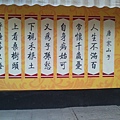 唐 寒山子
人生不滿百
常懷千載憂
自身病始可
又為子孫愁
下視禾根土
上看桑樹頭